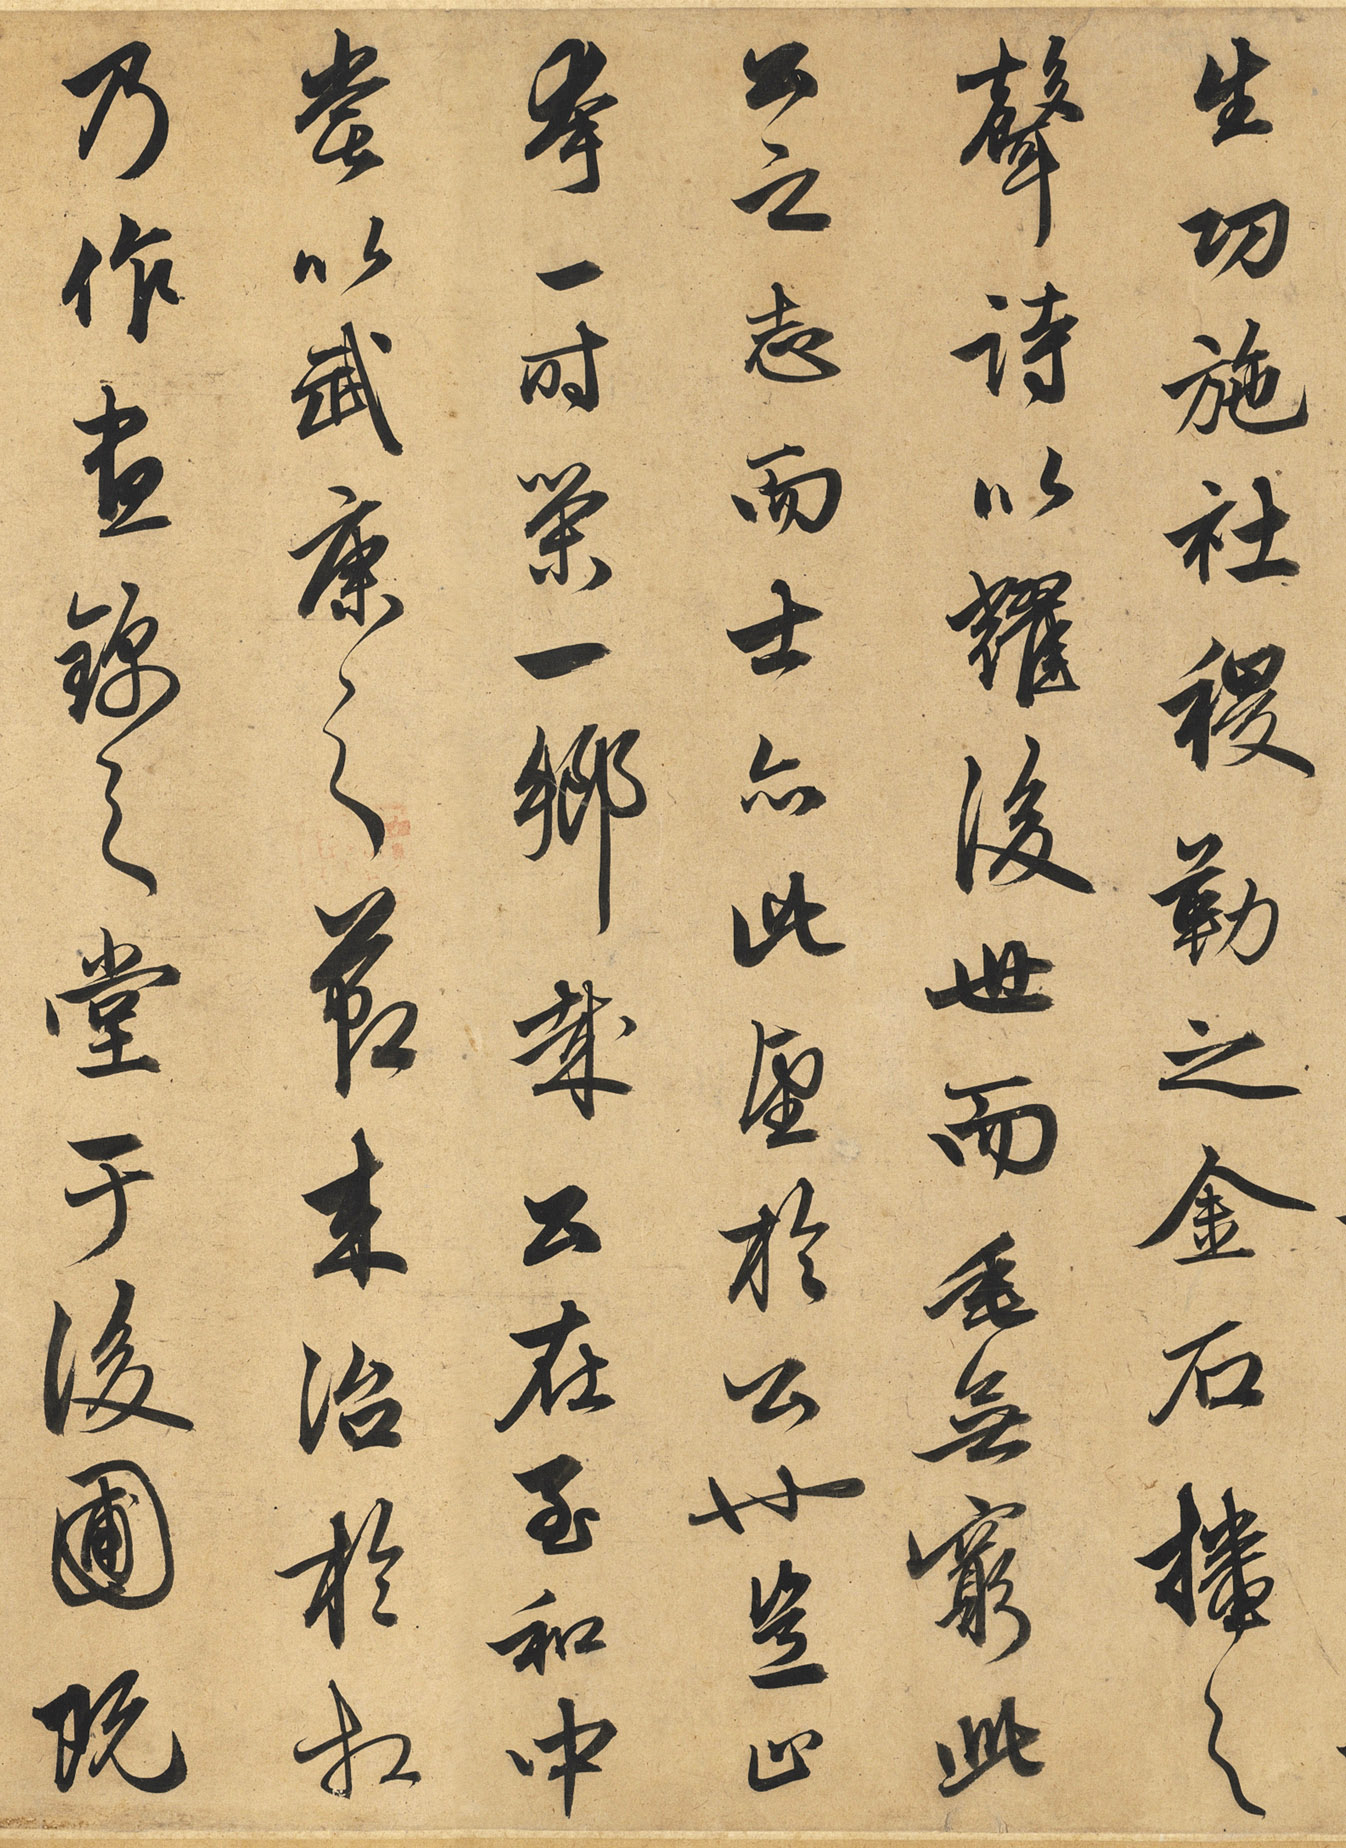 生功施社稷勒之金石播之
聲詩以耀後世而垂無窮此
公之志而士亦此望於公也豈止
夸一時榮一鄉哉公在至和中
嘗以武康之節来治於相
乃作晝錦之堂于後圃既